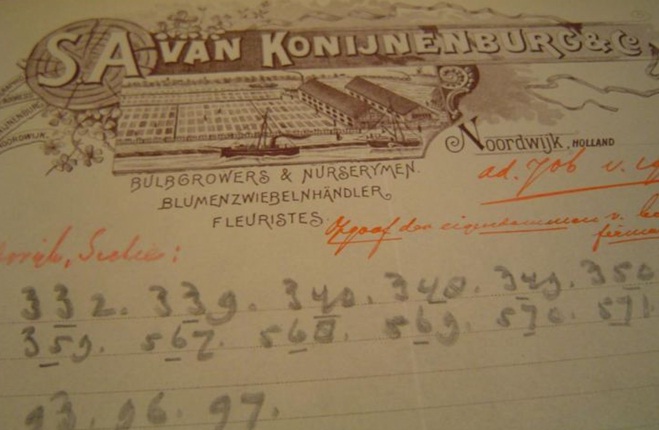 S A VAN KONIJNENBURG & Co
NOORDWIJK
Noordwijk, HOLLAND
BULBGROWERS & NURSERYMEN.
BLUMENZWIEBELNHÄNDLER,
FLEURISTES.
ad. Job v.
Opgaaf der eigendommen v.
332. 339. 340. 348. 349. 350
359. 567. 568. 569. 570. 571.
93. 96. 97.